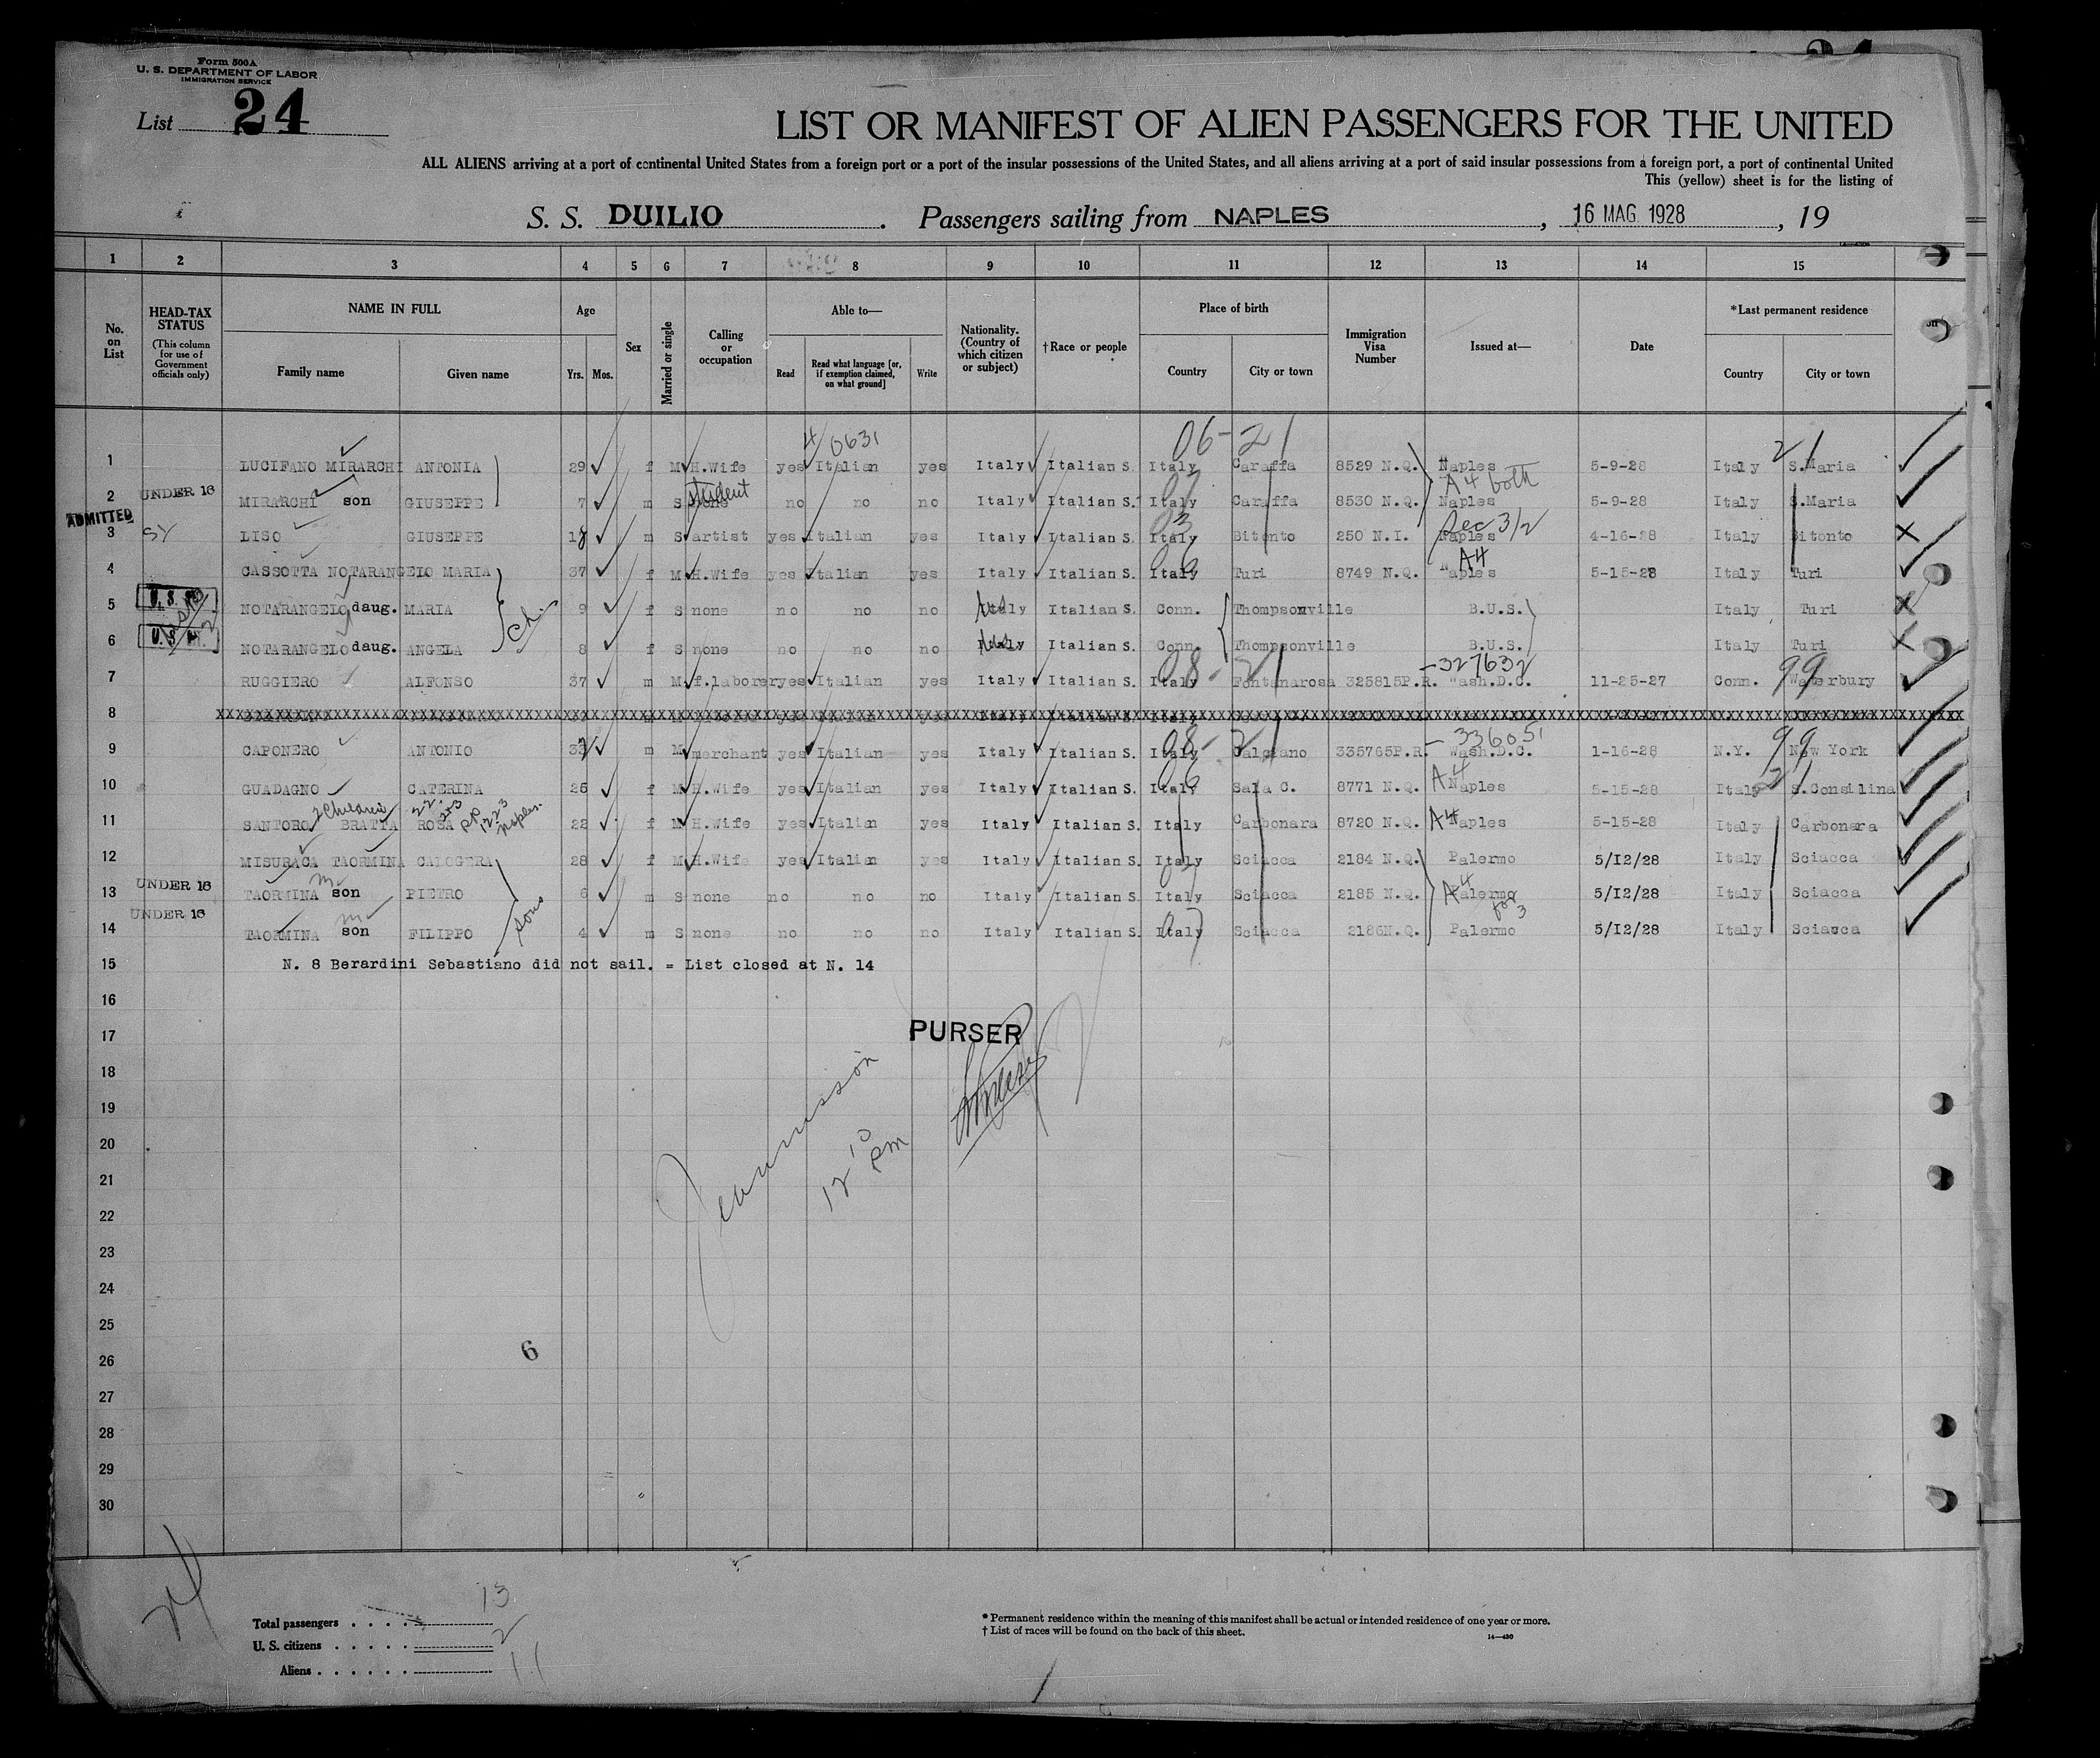 Form 500A
U. S. DEPARTMENT OF LABOR
IMMIGRATION SERVICE
List 24
LIST OR MANIFEST OF ALIEN PASSENGERS FOR THE UNITED
ALL ALIENS arriving at a port of continental United States from a foreign port or a port of the insular possessions of the United States, and all aliens arriving at a port of said insular possessions from a foreign port, a port of continental United
This (yellow) sheet is for the listing of
S. S. DUILIO . Passengers sailing from NAPLES , 16 MAG. 1928 , 19
1 2 3 4 5 6 7 8 9 10 11 12 13 14 15
No. on List
HEAD-TAX STATUS (This column for use of Government officials only)
NAME IN FULL Family name Given name
Age Yrs. Mos.
Sex
Married or single
Calling or occupation
Able to— Read Read what language [or, if exemption claimed, on what ground] Write
Nationality. (Country of which citizen or subject)
†Race or people
Place of birth Country City or town
Immigration Visa Number
Issued at—
Date
*Last permanent residence Country City or town
4/0631 06-21 21
1 LUCIFANO MIRARCHI ANTONIA 29 f M H.Wife yes Italian yes Italy Italian S. Italy Caraffa 8529 N.Q. Naples 5-9-28 Italy S.Maria
student A4 both
2 UNDER 16 MIRARCHI son GIUSEPPE 7 m S none no no no Italy Italian S. Italy Caraffa 8530 N.Q. Naples 5-9-28 Italy S.Maria
ADMITTED
3 SY LISO GIUSEPPE 18 m S artist yes Italian yes Italy Italian S. Italy Bitonto 250 N.I. Naples 4-16-28 Italy Bitonto
Sec 3/2
4 CASSOTTA NOTARANGELO MARIA 37 f M H.Wife yes Italian yes Italy Italian S. Italy Turi 8749 N.Q. Naples A4 5-15-28 Italy Turi
5 NOTARANGELO daug. MARIA 9 f S none no no no Italy US Italian S. Conn. Thompsonville B.U.S. Italy Turi
ch.
6 NOTARANGELO daug. ANGELA 8 f S none no no no Italy US Italian S. Conn. Thompsonville B.U.S. Italy Turi
08-21 -327632 99
7 RUGGIERO ALFONSO 37 m M f.laborer yes Italian yes Italy Italian S. Italy Fontanarosa 325815P.R. Wash.D.C. 11-25-27 Conn. Waterbury
8
08-21 -336051 99
9 CAPONERO ANTONIO 32 m M merchant yes Italian yes Italy Italian S. Italy Calciano 335765P.R. Wash.D.C. 1-16-28 N.Y. New York
10 GUADAGNO CATERINA 26 f M H.Wife yes Italian yes Italy Italian S. Italy Sala C. 8771 N.Q. A4 Naples 5-15-28 Italy S.Consilina
2 Children Naples.
11 SANTORO BRATTA ROSA 22 f M H.Wife yes Italian yes Italy Italian S. Italy Carbonara 8720 N.Q. A4 Naples 5-15-28 Italy Carbonara
12 MISURACA TAORMINA CALOGERA 28 f M H.Wife yes Italian yes Italy Italian S. Italy Sciacca 2184 N.Q. Palermo 5/12/28 Italy Sciacca
13 UNDER 16 TAORMINA son PIETRO 6 m S none no no no Italy Italian S. Italy Sciacca 2185 N.Q. A4 Palermo 5/12/28 Italy Sciacca
sons for 3
14 UNDER 16 TAORMINA son FILIPPO 4 m S none no no no Italy Italian S. Italy Sciacca 2186N.Q. Palermo 5/12/28 Italy Sciacca
15 N. 8 Berardini Sebastiano did not sail. = List closed at N. 14
16
17 PURSER
18
19
20 12 10 pm
21
22
23
24
25
26 6
27
28
29
30
24
Total passengers 13
U. S. citizens 2
Aliens 11
* Permanent residence within the meaning of this manifest shall be actual or intended residence of one year or more.
† List of races will be found on the back of this sheet.
14—430